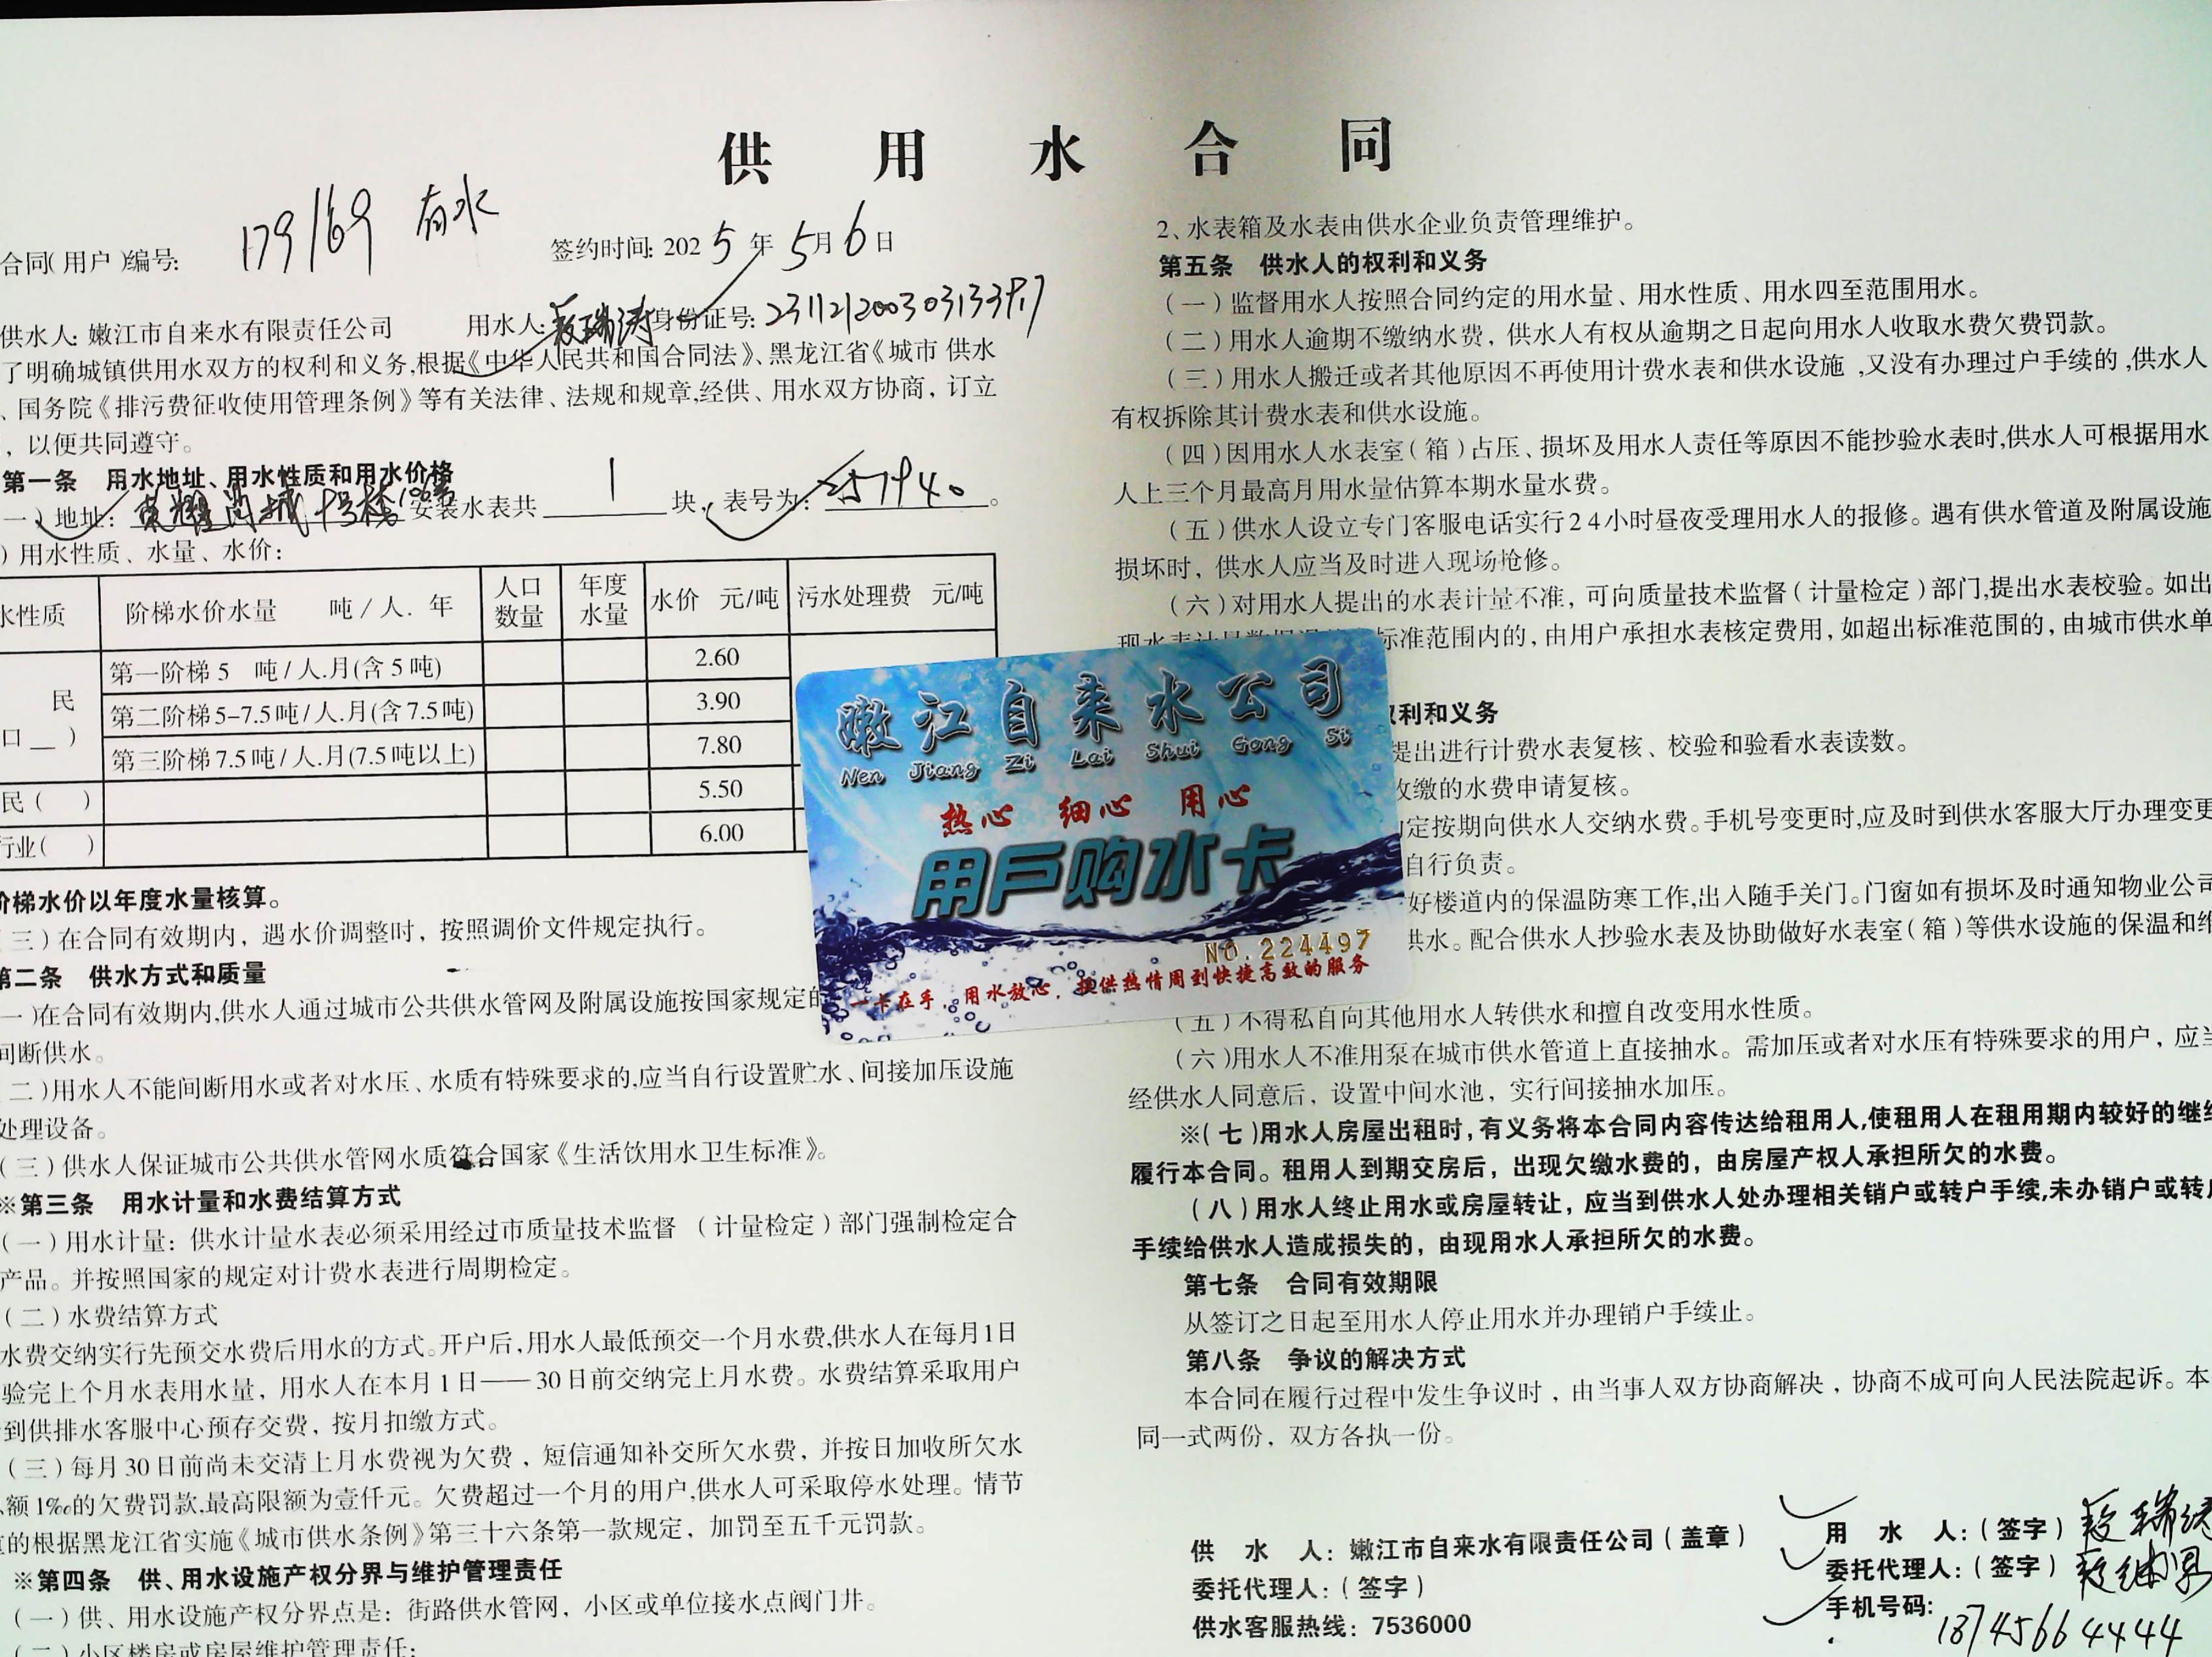 供用水合同
合同(用户)编号: 179169 有水
签约时间: 2025年5月6日
供水人: 嫩江市自来水有限责任公司 用水人: 段瑞涛 身份证号:
了明确城镇供用水双方的权利和义务,根据《中华人民共和国合同法》、黑龙江省《城市 供水
、国务院《排污费征收使用管理条例》等有关法律、法规和规章,经供、用水双方协商，订立
，以便共同遵守。
第一条 用水地址、用水性质和用水价格
一)地址: 荣耀尚城 安装水表共 1 块，表号为: 257940。
)用水性质、水量、水价:
水性质 阶梯水价水量 吨/人.年 人口数量 年度水量 水价 元/吨 污水处理费 元/吨
民
口__)
第一阶梯 5 吨/人.月(含5吨) 2.60
第二阶梯 5-7.5吨/人.月(含7.5吨) 3.90
第三阶梯 7.5吨/人.月(7.5吨以上) 7.80
民( ) 5.50
行业( ) 6.00
阶梯水价以年度水量核算。
三)在合同有效期内，遇水价调整时，按照调价文件规定执行。
第二条 供水方式和质量
一)在合同有效期内,供水人通过城市公共供水管网及附属设施按国家规定的
间断供水。
二)用水人不能间断用水或者对水压、水质有特殊要求的,应当自行设置贮水、间接加压设施
处理设备。
(三)供水人保证城市公共供水管网水质符合国家《生活饮用水卫生标准》。
※第三条 用水计量和水费结算方式
(一)用水计量：供水计量水表必须采用经过市质量技术监督 (计量检定)部门强制检定合
产品。并按照国家的规定对计费水表进行周期检定。
(二)水费结算方式
水费交纳实行先预交水费后用水的方式。开户后,用水人最低预交一个月水费,供水人在每月1日
验完上个月水表用水量，用水人在本月1日——30日前交纳完上月水费。水费结算采取用户
到供排水客服中心预存交费，按月扣缴方式。
(三)每月30日前尚未交清上月水费视为欠费，短信通知补交所欠水费，并按日加收所欠水
额1‰的欠费罚款,最高限额为壹仟元。欠费超过一个月的用户,供水人可采取停水处理。情节
的根据黑龙江省实施《城市供水条例》第三十六条第一款规定，加罚至五千元罚款。
※第四条 供、用水设施产权分界与维护管理责任
(一)供、用水设施产权分界点是：街路供水管网，小区或单位接水点阀门井。
(二)小区楼房或房屋维护管理责任:
2、水表箱及水表由供水企业负责管理维护。
第五条 供水人的权利和义务
(一)监督用水人按照合同约定的用水量、用水性质、用水四至范围用水。
(二)用水人逾期不缴纳水费，供水人有权从逾期之日起向用水人收取水费欠费罚款。
(三)用水人搬迁或者其他原因不再使用计费水表和供水设施，又没有办理过户手续的,供水人
有权拆除其计费水表和供水设施。
(四)因用水人水表室(箱)占压、损坏及用水人责任等原因不能抄验水表时,供水人可根据用水
人上三个月最高月用水量估算本期水量水费。
(五)供水人设立专门客服电话实行24小时昼夜受理用水人的报修。遇有供水管道及附属设施
损坏时，供水人应当及时进入现场抢修。
(六)对用水人提出的水表计量不准，可向质量技术监督(计量检定)部门,提出水表校验。如出
现水表计量数据 标准范围内的，由用户承担水表核定费用，如超出标准范围的，由城市供水单
权利和义务
提出进行计费水表复核、校验和验看水表读数。
收缴的水费申请复核。
定按期向供水人交纳水费。手机号变更时,应及时到供水客服大厅办理变更
自行负责。
好楼道内的保温防寒工作,出入随手关门。门窗如有损坏及时通知物业公司
供水。配合供水人抄验水表及协助做好水表室(箱)等供水设施的保温和维
(五)不得私自向其他用水人转供水和擅自改变用水性质。
(六)用水人不准用泵在城市供水管道上直接抽水。需加压或者对水压有特殊要求的用户，应当
经供水人同意后，设置中间水池，实行间接抽水加压。
※(七)用水人房屋出租时,有义务将本合同内容传达给租用人,使租用人在租用期内较好的继续
履行本合同。租用人到期交房后，出现欠缴水费的，由房屋产权人承担所欠的水费。
(八)用水人终止用水或房屋转让，应当到供水人处办理相关销户或转户手续,未办销户或转户
手续给供水人造成损失的，由现用水人承担所欠的水费。
第七条 合同有效期限
从签订之日起至用水人停止用水并办理销户手续止。
第八条 争议的解决方式
本合同在履行过程中发生争议时，由当事人双方协商解决，协商不成可向人民法院起诉。本
同一式两份，双方各执一份。
供水人：嫩江市自来水有限责任公司(盖章)
委托代理人：(签字)
供水客服热线：7536000
用水人：(签字) 段瑞涛
委托代理人：(签字)
手机号码: 13745664444
嫩江自来水公司
Nen Jiang Zi Lai Shui Gong Si
热心 细心 用心
用户购水卡
NO.224497
一卡在手，用水放心，提供热情周到快捷高效的服务